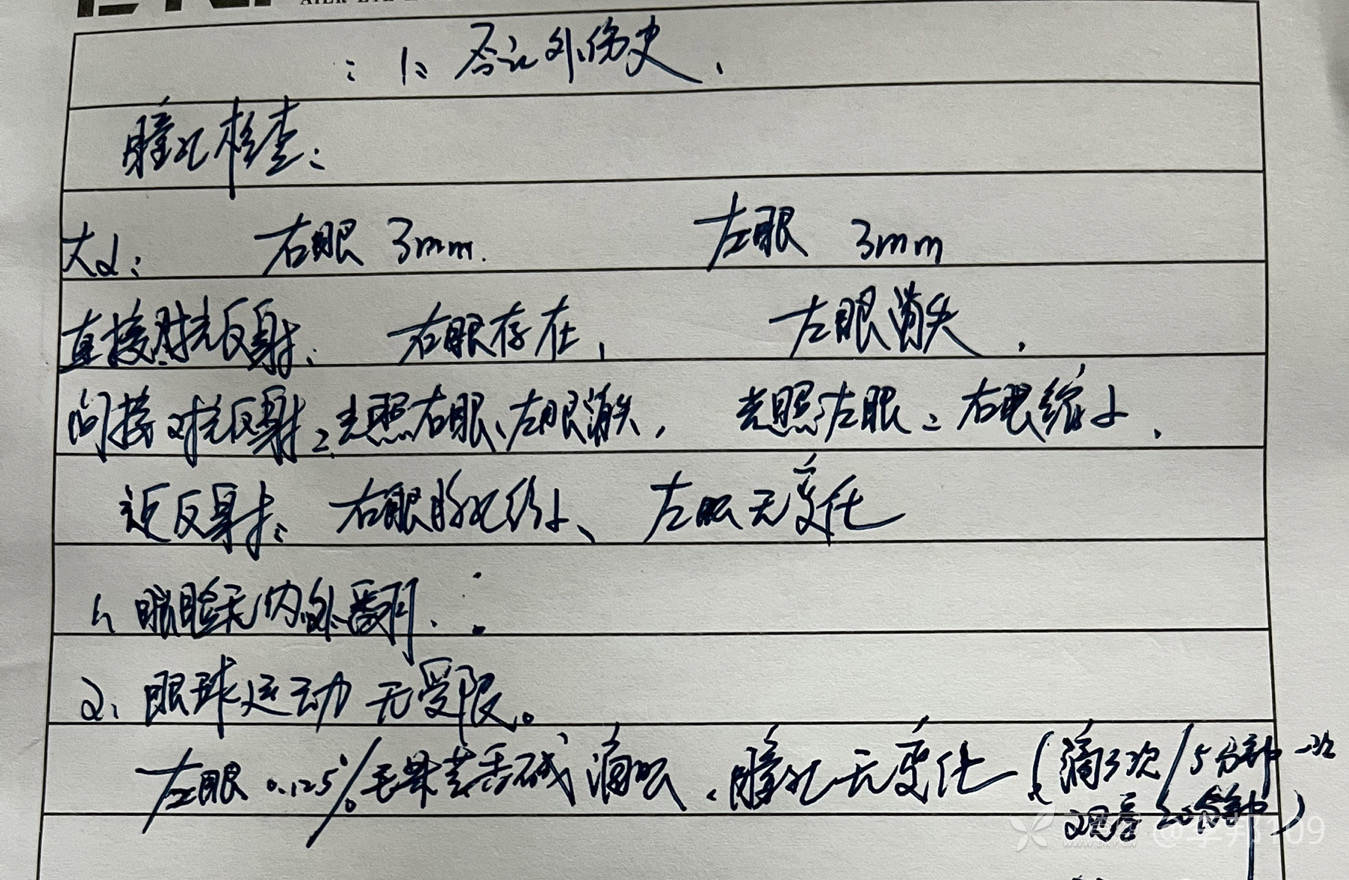 : 1: 否认外伤史、
瞳孔检查:
大小: 右眼 3mm. 左眼 3mm
直接对光反射: 右眼存在, 左眼消失.
间接对光反射: 光照右眼、左眼消失, 光照左眼: 右眼缩小.
近反射: 右眼瞳孔缩小、左眼无变化
1、眼睑无内外翻. :
2、眼球运动无受限。
左眼 0.125% 毛果芸香碱滴眼、瞳孔无变化 (滴3次/5分钟一次
观察 分钟)
@李邦1109